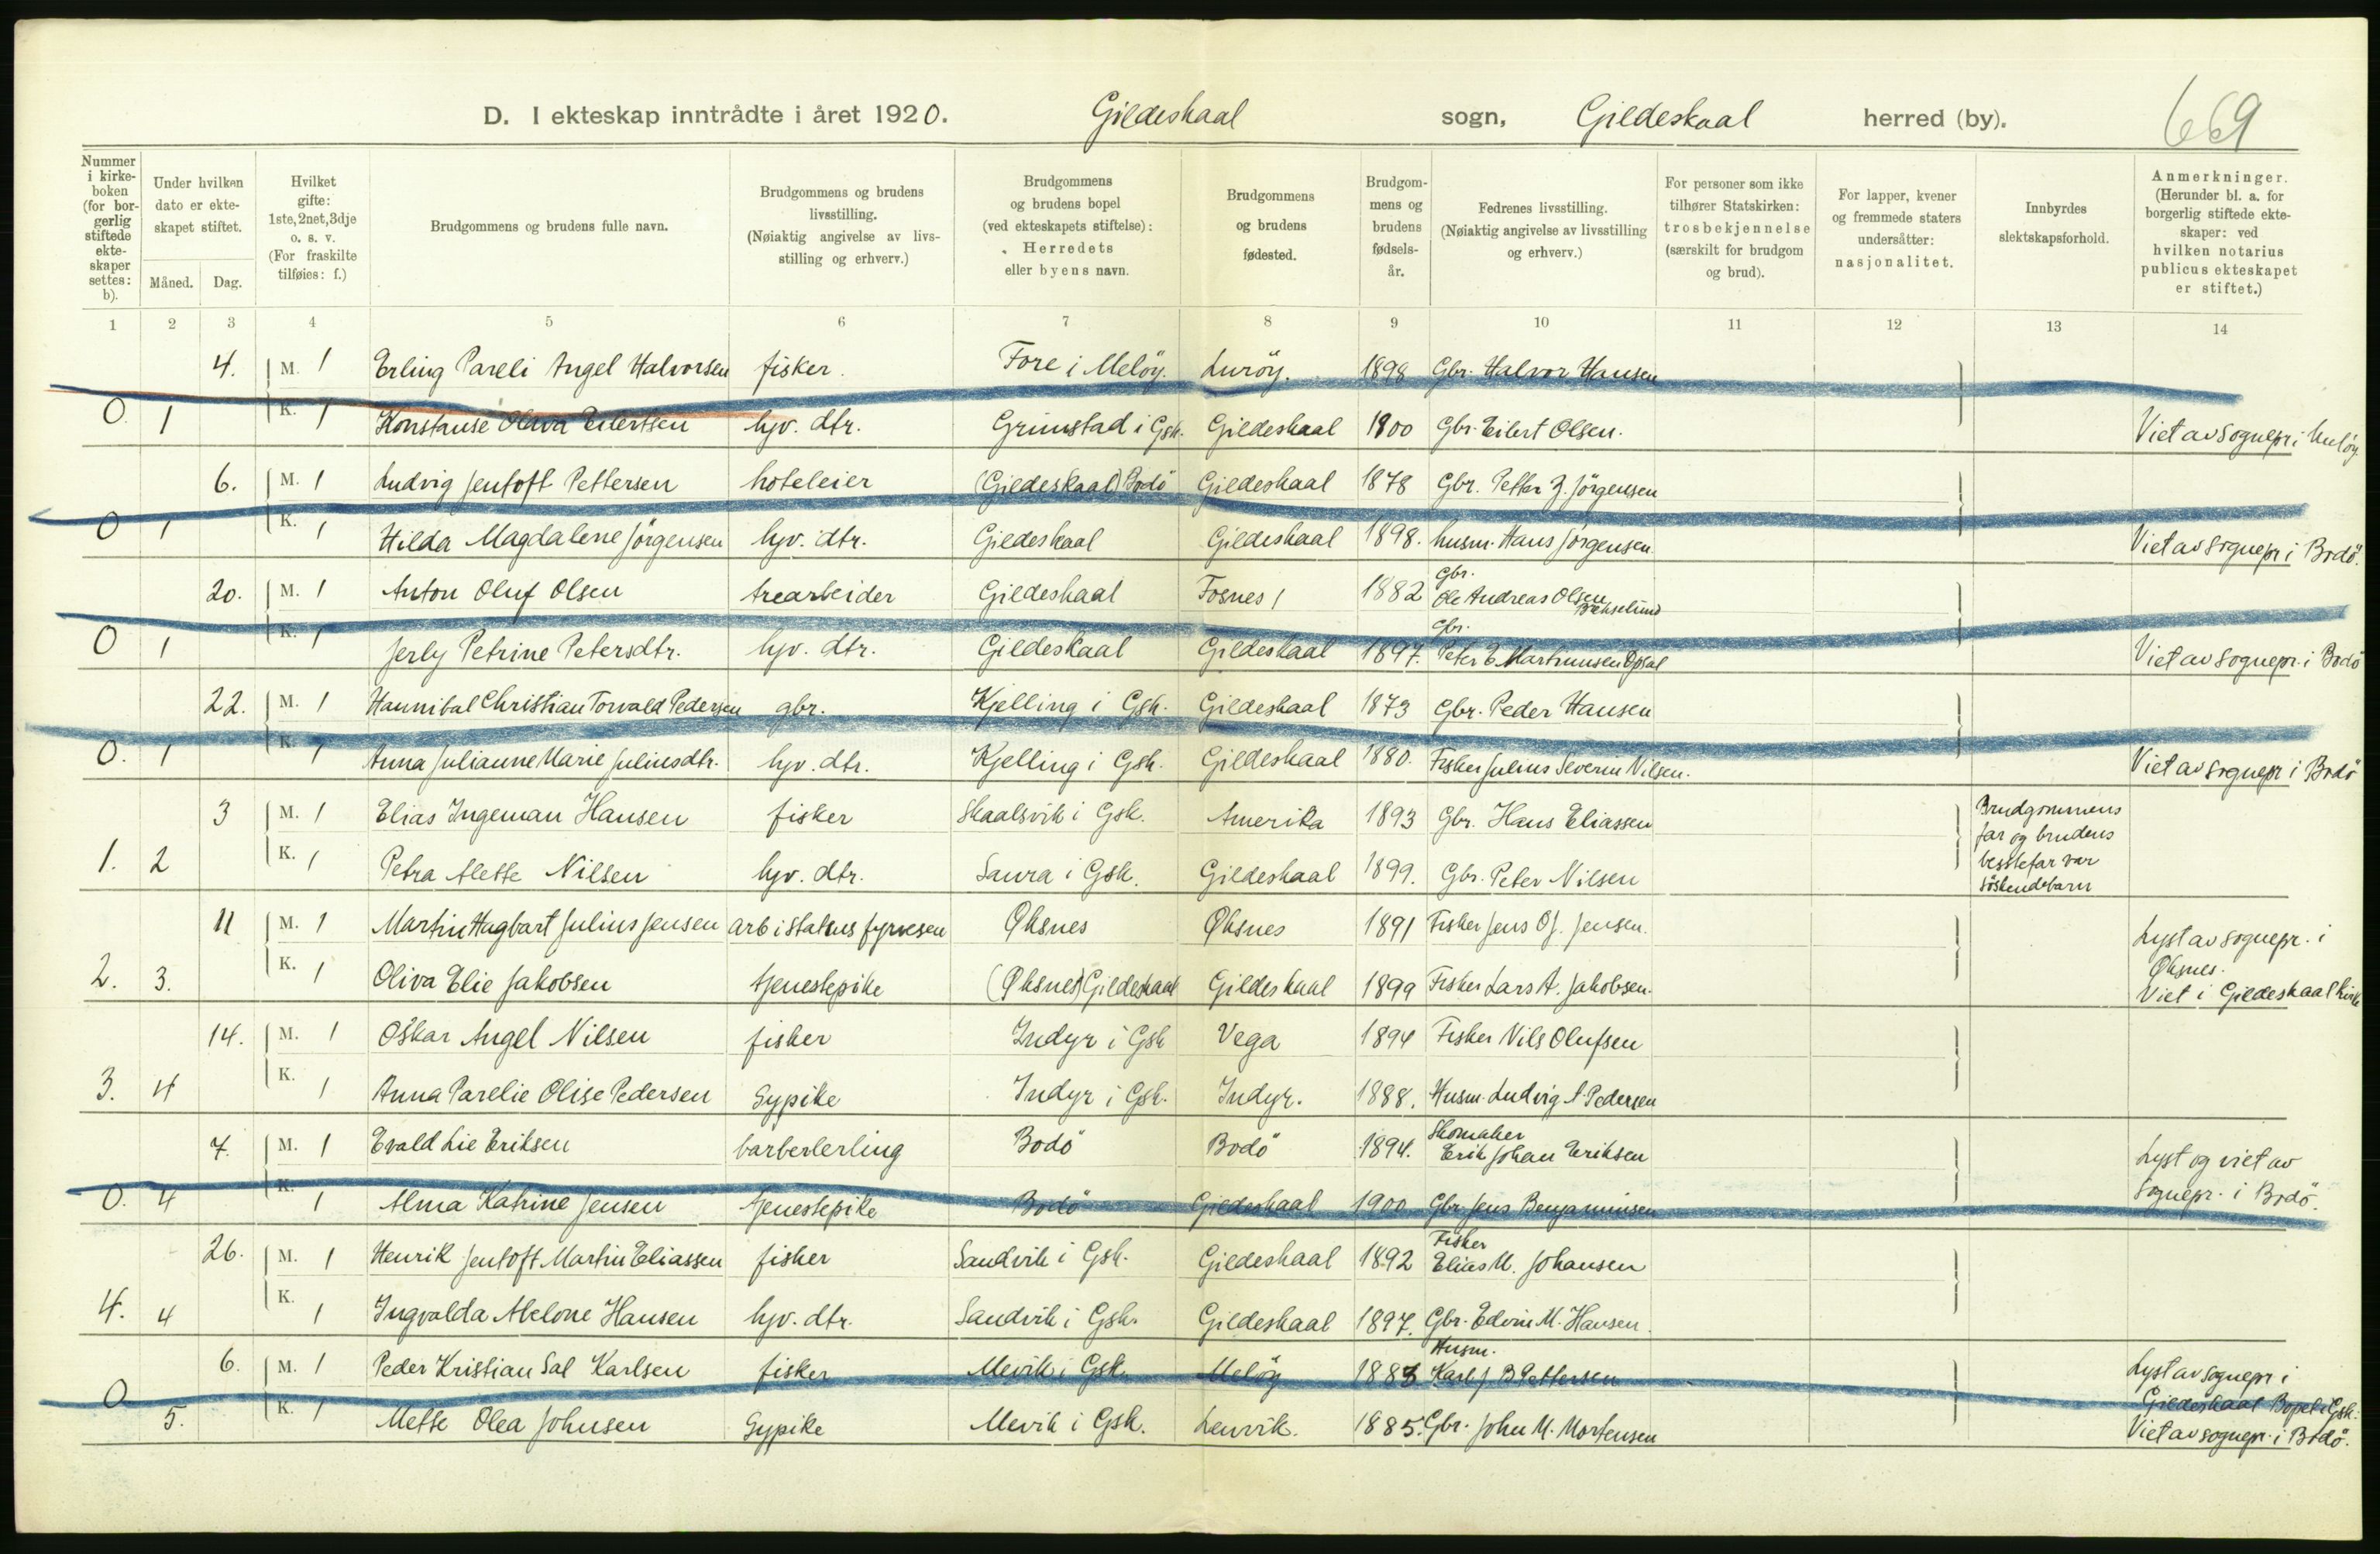 D. I ekteskap inntrådte i året 1920. Gildeskaal sogn, Gildeskaal herred (by). 669
Nummer i kirke- boken (for bor- gerlig stiftede ekte- skaper settes: b).
Under hvilken dato er ekte- skapet stiftet.
Måned. Dag.
Hvilket gifte: 1ste, 2net, 3dje o. s. v. (For fraskilte tilføies: f.)
Brudgommens og brudens fulle navn.
Brudgommens og brudens livsstilling. (Nøiaktig angivelse av livs- stilling og erhverv.)
Brudgommens og brudens bopel (ved ekteskapets stiftelse): Herredets eller byens navn.
Brudgommens og brudens fødested.
Brudgom- mens og brudens fødsels- år.
Fedrenes livsstilling. (Nøiaktig angivelse av livsstilling og erhverv.)
For personer som ikke tilhører Statskirken: trosbekjennelse (særskilt for brudgom og brud).
For lapper, kvener og fremmede staters undersåtter: nasjonalitet.
Innbyrdes slektskapsforhold.
Anmerkninger. (Herunder bl. a. for borgerlig stiftede ekte- skaper: ved hvilken notarius publicus ekteskapet er stiftet.)
1 2 3 4 5 6 7 8 9 10 11 12 13 14
4. M. 1 Erling Pareli Angel Halvorsen fisker. Fore i Meløy. Lurøy. 1898 Gbr. Halvor Hansen
0 1 K. 1 Konstanse Olava Eilertsen hjv. dtr. Grimstad i Gsk. Gildeskaal 1900 Gbr. Eilert Olsen. Viet av sognepr i Meløy
6. M. 1 Ludvig Jentoft Pettersen hoteleier (Gildeskaal) Bodö Gildeskaal 1878 Gbr. Petter Z. Jörgensen
0 1 K. 1 Hilda Magdalene Jörgensen hjv. dtr. Gildeskaal Gildeskaal 1898. husm. Hans Jörgensen. Viet av sognepr i Bodö.
20. M. 1 Anton Oluf Olsen trearbeider Gildeskaal Fosnes 1882 Gbr. Ole Andreas Olsen
0 1 K. 1 Jerly Petrine Petersdtr. hjv. dtr. Gildeskaal Gildeskaal 1897. Gbr. Peter E. Martinusen Opsal Viet av sognepr. i Bodö
22. M. 1 Hannibal Christian Torvald Pedersen gbr. Kjelling i Gsk. Gildeskaal 1873 Gbr. Peder Hansen
0. 1 K. 1 Anna Julianne Marie Juliusdtr. hjv. dtr. Kjelling i Gsk. Gildeskaal 1880. Fisker Julius Severin Nilsen. Viet av sognepr i Bodö
3 M. 1 Elias Ingeman Hansen fisker Skaalsvik i Gsk. Amerika 1893 Gbr. Hans Eliassen Brudgommens far og brudens besstefar var söskendebarn
1. 2 K. 1 Petra Alette Nilsen hjv. dtr. Saura i Gsk. Gildeskaal 1899. Gbr. Peter Nilsen
11 M. 1 Martin Hagbart Julius Jensen arb i statens fyrvesen Øksnes Øksnes 1891 Fisker Jens O J. Jensen. Lyst av sognepr. i Øksnes.
2. 3. K. 1 Oliva Elie Jakobsen tjenestepike (Øksnes) Gildeskaal Gildeskaal 1899 Fisker Lars A. Jakobsen. Viet i Gildeskaal kirke
14. M. 1 Oskar Angel Nilsen fisker Indyr i Gsk Vega 1894 Fisker Nils Olufsen
3. 4 K. 1 Anna Parelie Olise Pedersen Sypike Indyr i Gsk. Indyr. 1888. Husm. Ludvig A. Pedersen
7. M. 1 Evald Lie Eriksen barberlerling Bodö Bodö 1894. Skomaker Erik Johan Eriksen Lyst og viet av
0. 4 K. 1 Alma Katrine Jensen tjenestepike Bodö Gildeskaal 1900 Gbr Jens Benjaminsen sognepr. i Bodö.
26. M. 1 Henrik Jentoft Martin Eliassen fisker Sandvik i Gsk. Gildeskaal 1892 Fisker Elias M. Johansen
4. 4 K. 1 Ingvalda Abelone Hansen hjv. dtr. Sandvik i Gsk. Gildeskaal 1897. Gbr. Edvin M. Hansen.
6. M. 1 Peder Kristian Sal Karlsen fisker Mevik i Gsk. Meløy 1883 Husm. Karl J. B. Pettersen Lyst av sognepr i Gildeskaal Bopel i Gsk.
0 5. K. 1 Mette Olea Johnsen Sypike Mevik i Gsk. Lenvik. 1885. Gbr. John M. Mortensen Viet av sognepr. i Bodö.